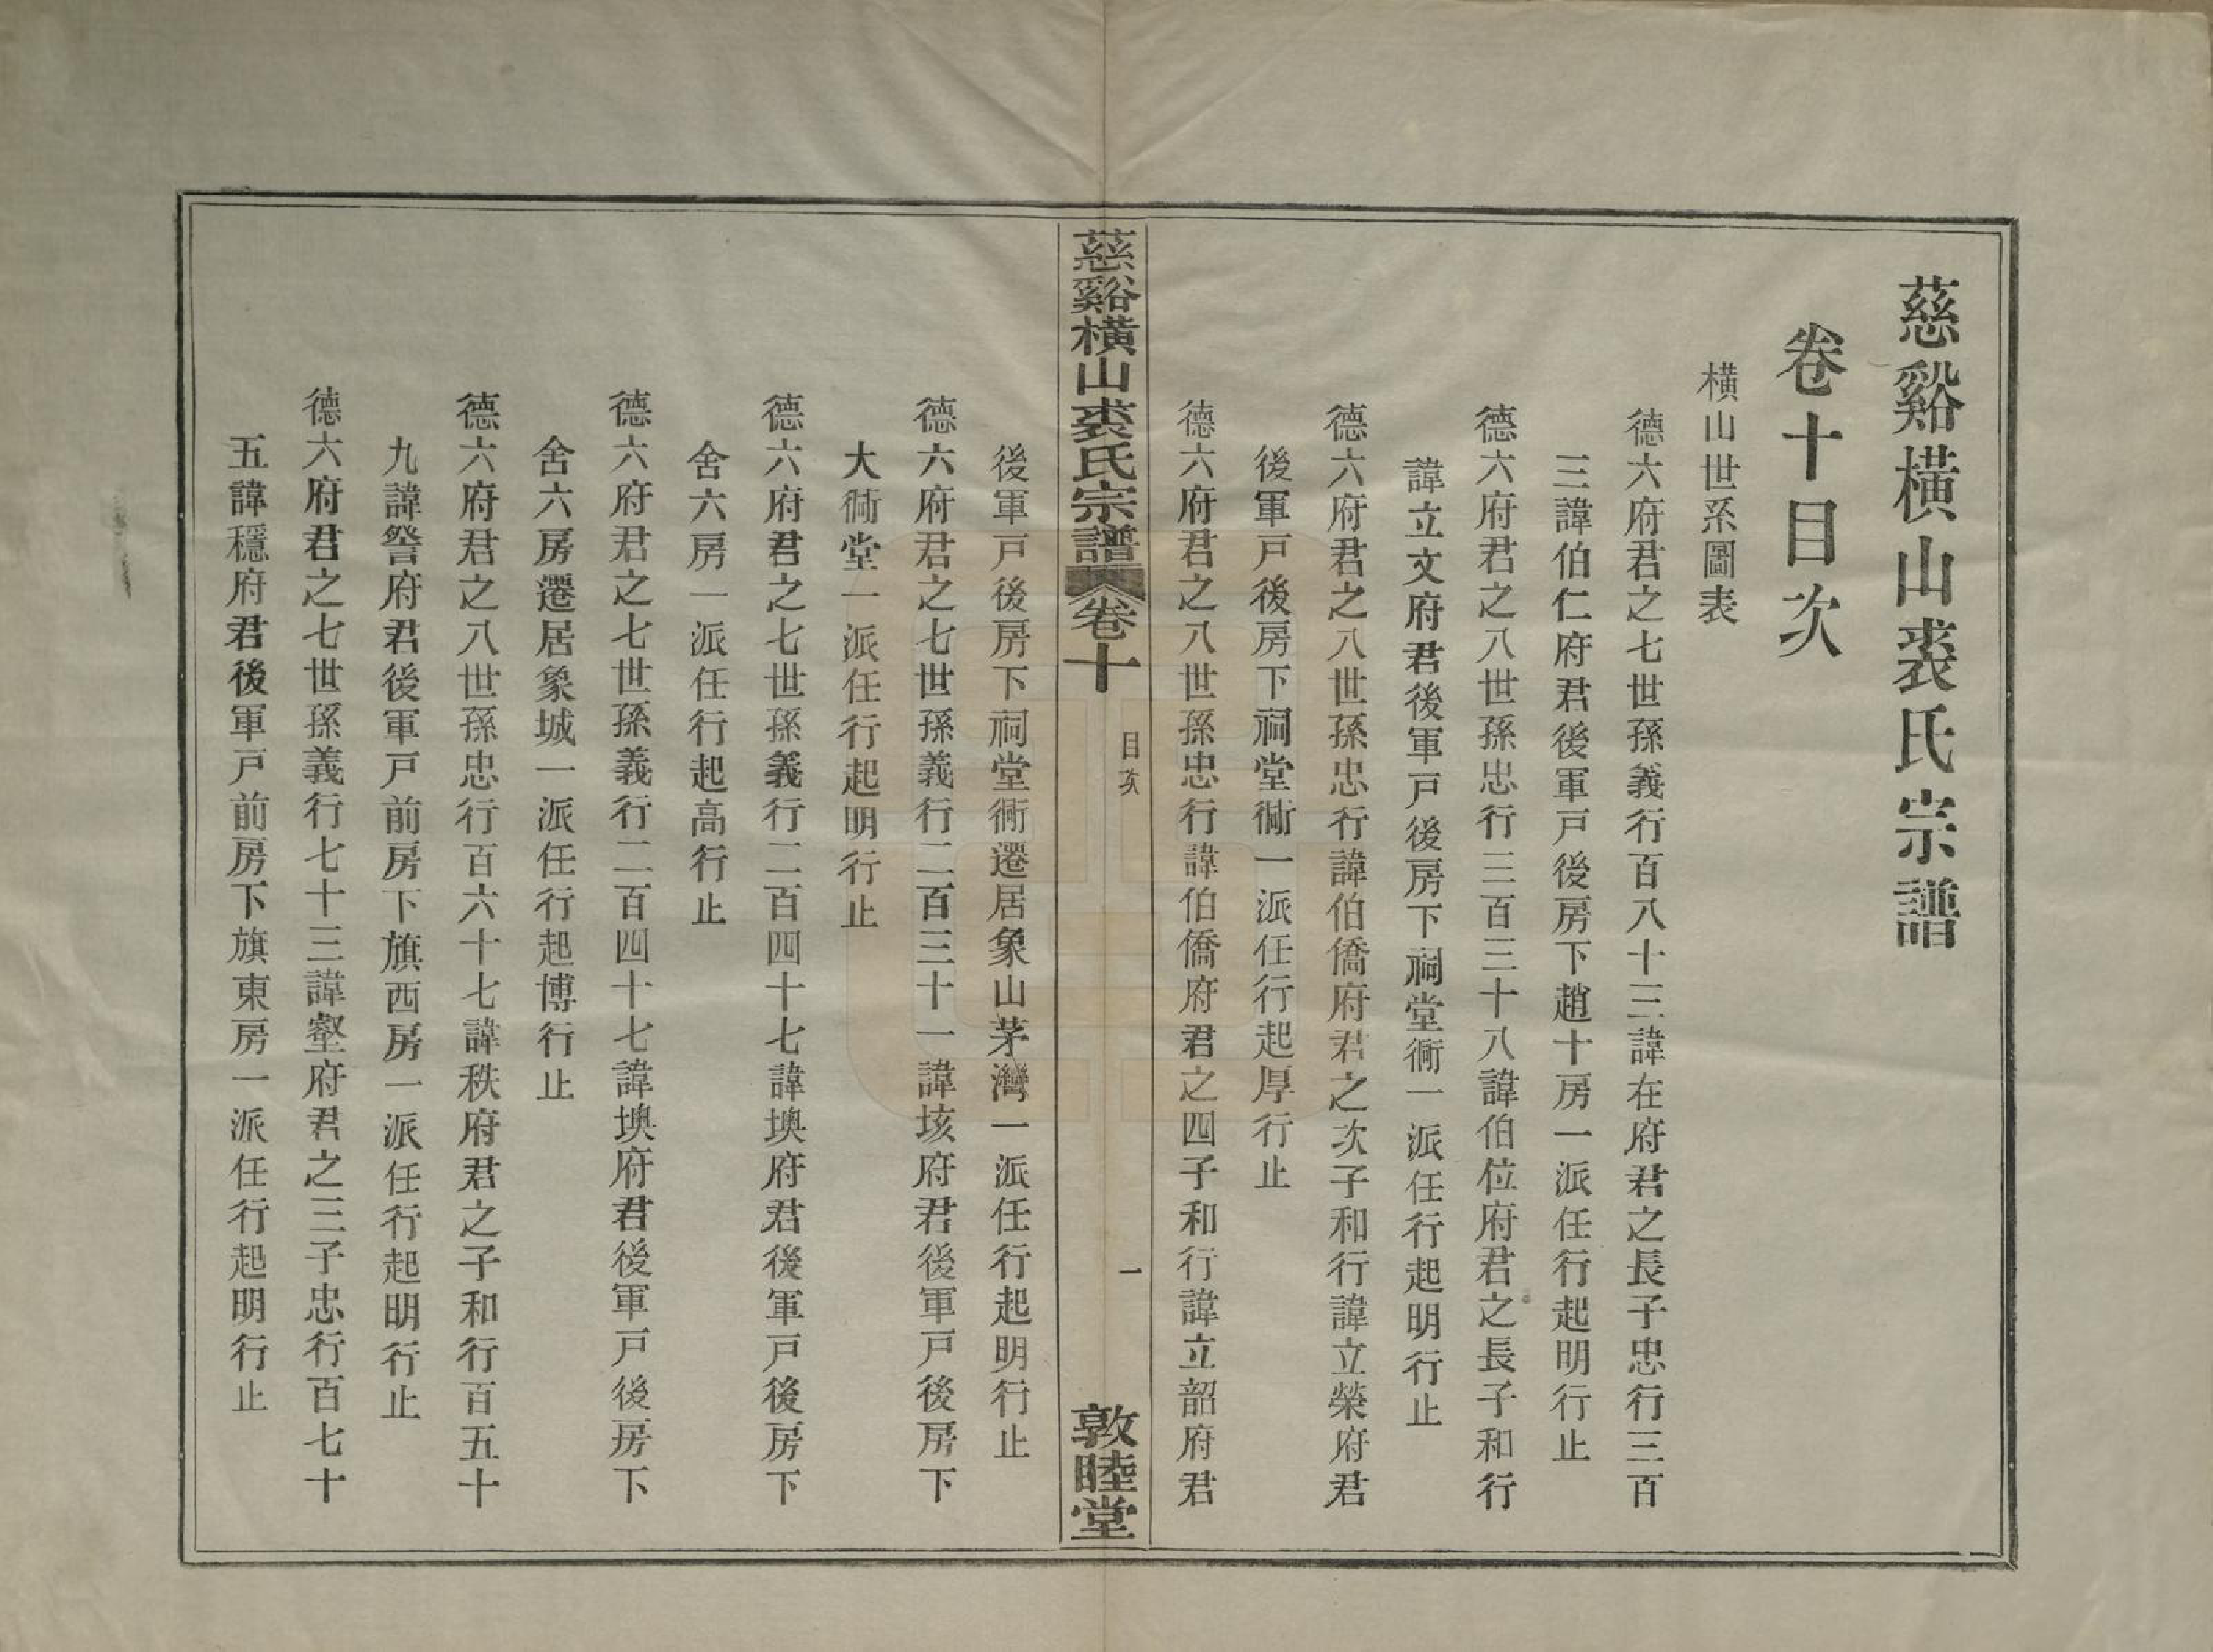 慈谿橫山裘氏宗譜
卷十目次
橫山世系圖表
德六府君之七世孫義行百八十三諱在府君之長子忠行三百
三諱伯仁府君後軍戸後房下趙十房一派任行起明行止
德六府君之八世孫忠行三百三十八諱伯位府君之長子和行
諱立文府君後軍戸後房下祠堂衕一派任行起明行止
德六府君之八世孫忠行諱伯僑府君之次子和行諱立榮府君
後軍戸後房下祠堂衕一派任行起厚行止
德六府君之八世孫忠行諱伯僑府君之四子和行諱立韶府君
慈谿橫山裘氏宗譜 卷十 目次 一 敦睦堂
後軍戸後房下祠堂衕遷居象山茅灣一派任行起明行止
德六府君之七世孫義行二百三十一諱垓府君後軍戸後房下
大衕堂一派任行起明行止
德六府君之七世孫義行二百四十七諱墺府君後軍戸後房下
舍六房一派任行起高行止
德六府君之七世孫義行二百四十七諱墺府君後軍戸後房下
舍六房遷居象城一派任行起博行止
德六府君之八世孫忠行百六十七諱秩府君之子和行百五十
九諱府君後軍戸前房下旗西房一派任行起明行止
德六府君之七世孫義行七十三諱壑府君之三子忠行百七十
五諱穩府君後軍戸前房下旗東房一派任行起明行止